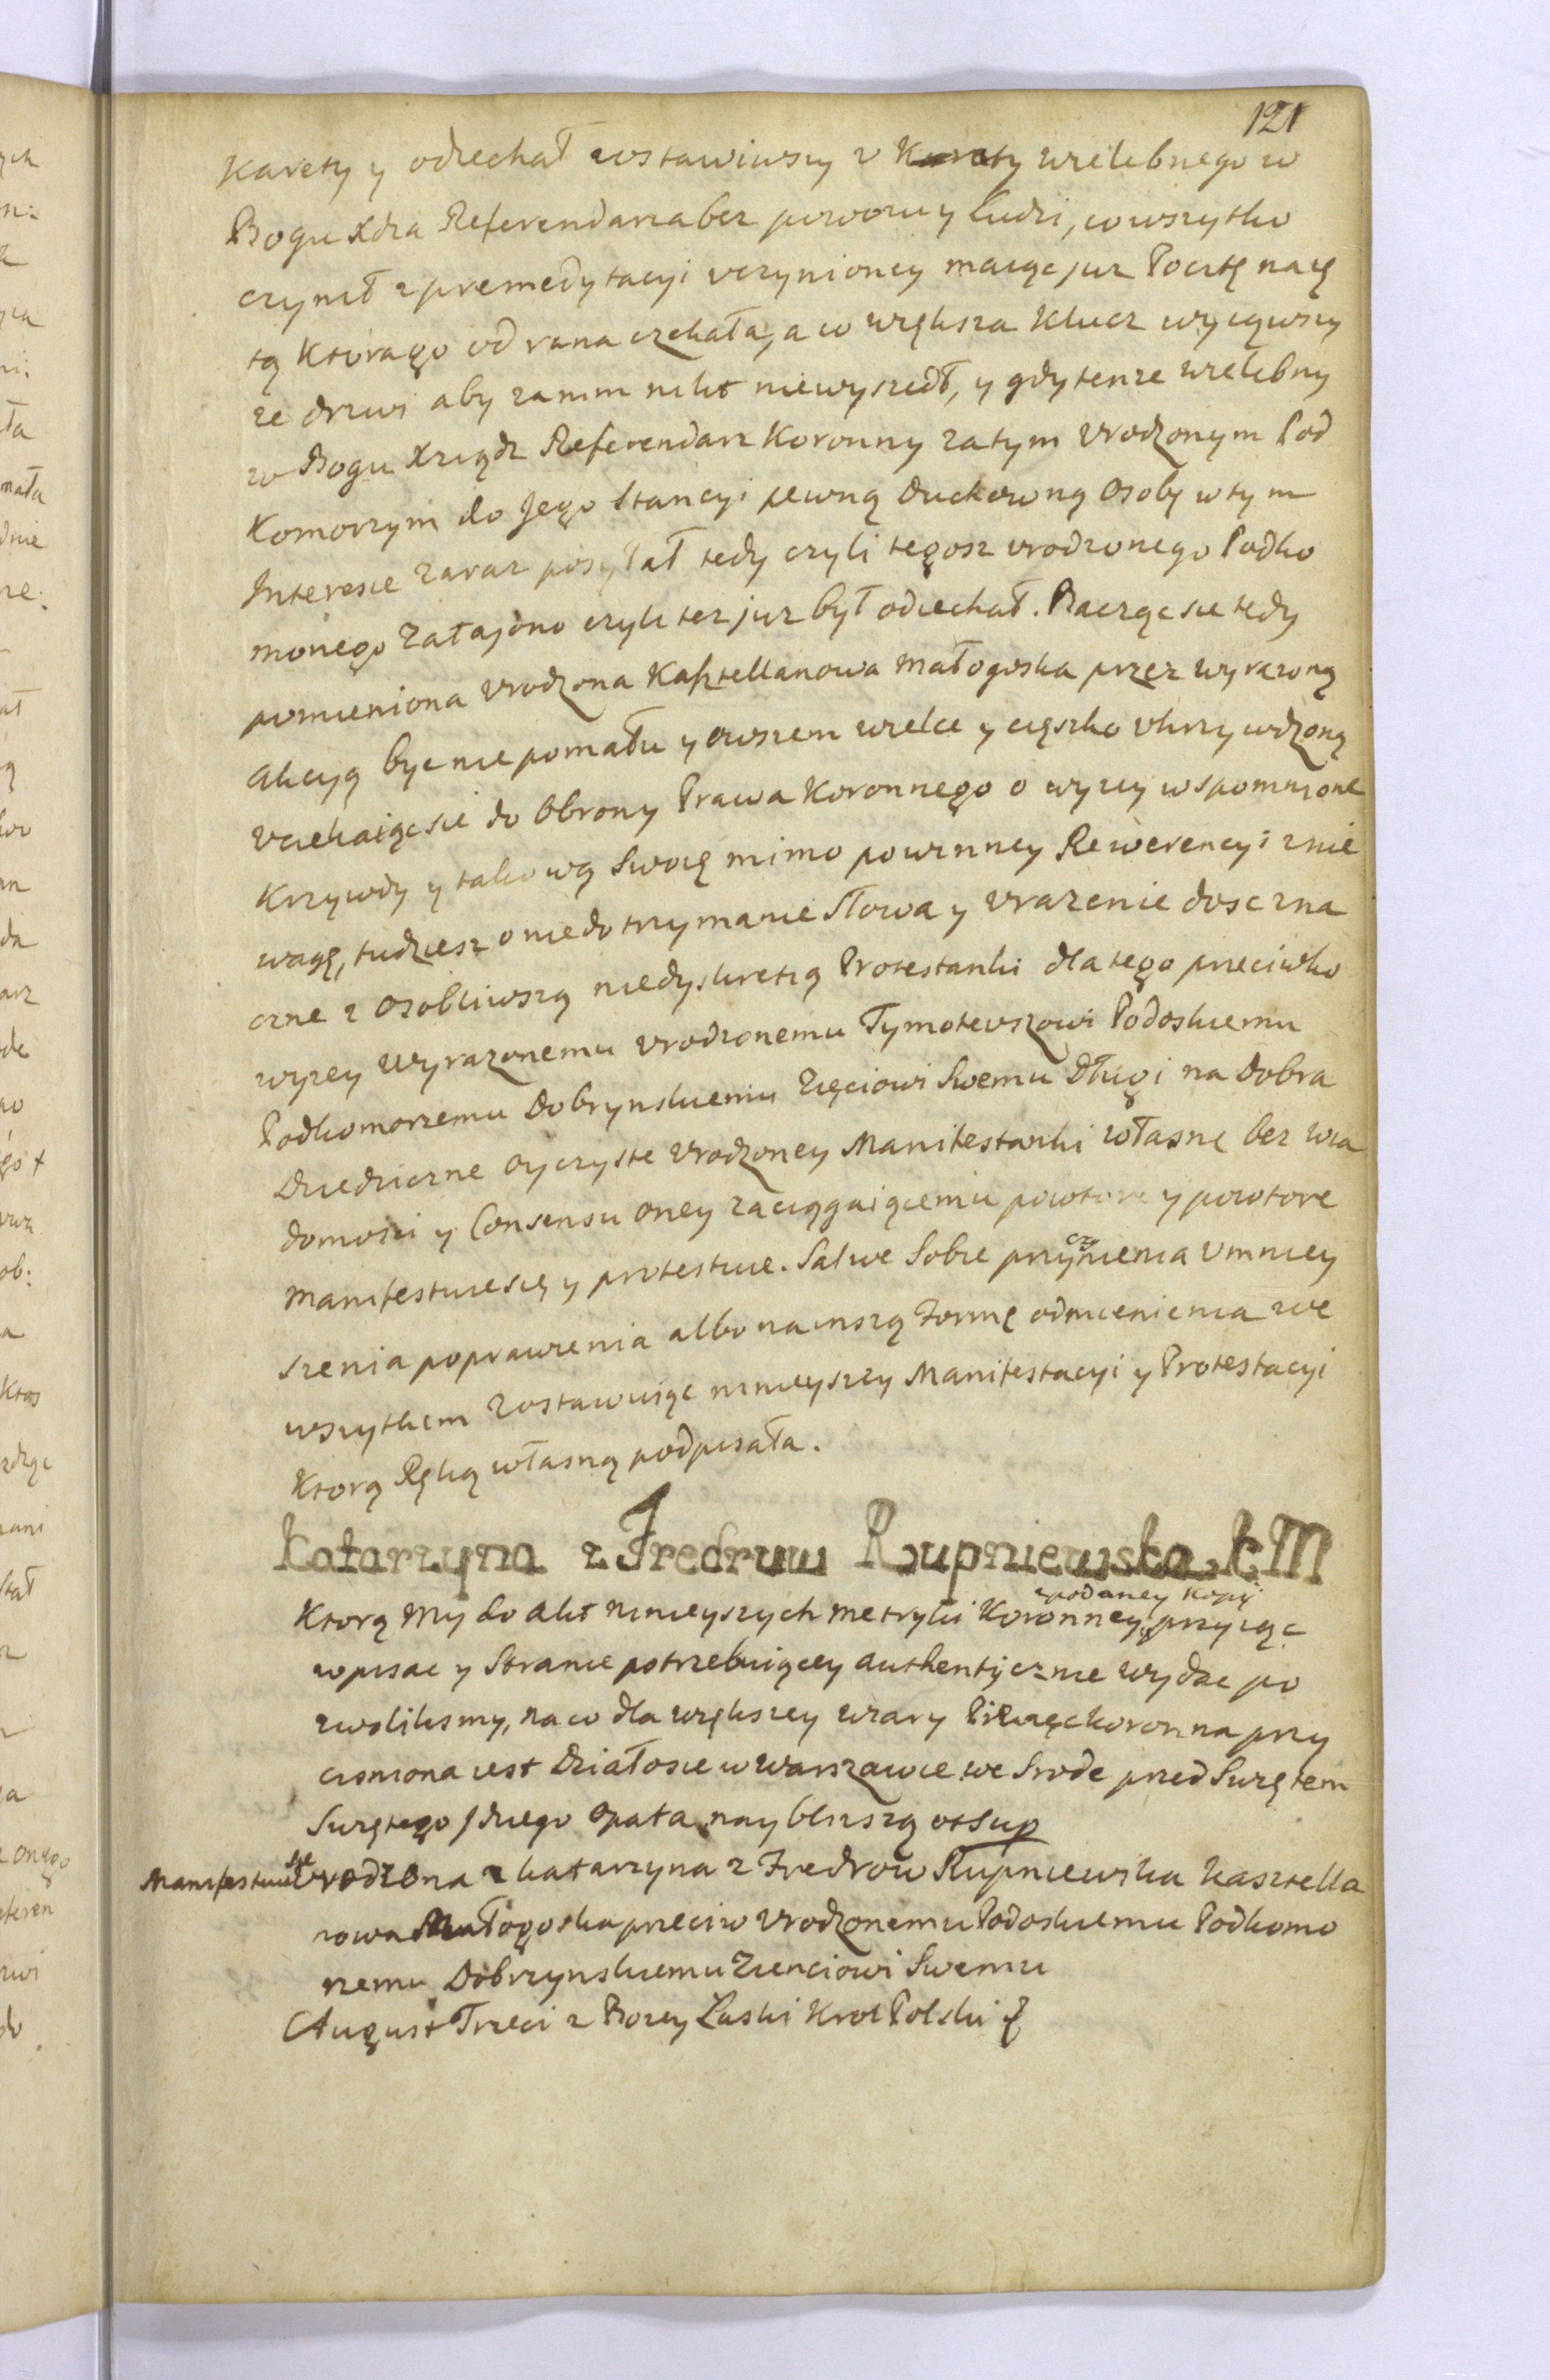 121
Karety y odiechał zostawiwszy v Karety wielebnego w
Bogu Xdza Referendarza bez pozoru y Ludzi, co wszytko
czynił z premedytacyi vczynioney maiąc juz Pocztę naię
tą Ktorago od rana czekała, a co większa Klucz wyiąwszy
ze drzwi aby zanim nikt niewyszedł, y gdy tenze wielebny
w Bogu Xsiądz Referendarz Koronny zatym Vrodzonym Pod
Komorzym do Jego Stancyi pewną Duchowną Osobę w tym
Interesie Zaraz posyłał tedy czyli tegosz vrodzonego Podko
morzego Zatajono czyli tez juz był odiechał. Bacząc sie tedy
pomieniona Vrodzona Kasztellanowa Małogoska przez wyrazoną
Akcyą byc nie pomału y owszem wielce y cięszko Vkrzywdzoną
Vciekaiąc sie do Obrony Prawa Koronnego o wyzey wspomnione
Krzywdy y takową Swoię mimo powinney Rewerencyi znie
wagę, tudziesz o niedotrzymanie Słowa y Vrazenie dosc zna
czne z osobliwszą niedyskretią Protestanki dla tego przeciwko
wyzey Wyrazonemu Vrodzonemu Tymoteuszowi Podoskiemu
Podkomorzemu Dobrynskiemu Zięciowi Swemu Długi na Dobra
Dziedziczne oyczyste Vrodzoney Manifestanki własne bez wia
domosci y Consensu oney zaciągaiącemu powtore y powtore
manifestuie się y protestuie. Salwe Sobie przyczynienia Vmniey
szenia poprawienia albo na inszą Formę odmienienia we
wszytkim Zostawuiąc ninieyszey Manifestacyi y Protestacyi
Ktorą Ręką własną podpisała.
Katarzyna z Fredruw Rupniewska. K M
z podaney kopii
Ktorą My do Akt ninieyszych metryki Koronney przyiąc
wpisac y Stronie potrzebuiącey authentycznie wydac po
zwolilismy, na co dla większey wiary Pieczęc koronna przy
cisniona iest Działo sie w Warszawie we Srode przed Swiętem
Swiętego Idziego Opata naybliszą ot Sup
Manifestuie sie Vrodzona Katarzyna z Fredrow Rupniewska Kasztella
nowa Małogoska przeciw Vrodzonemu Podoskiemu Podkomo
rzemu Dobrzynskiemu Zienciowi Swemu
August Trzeci z Bozey Łaski Krol Polski